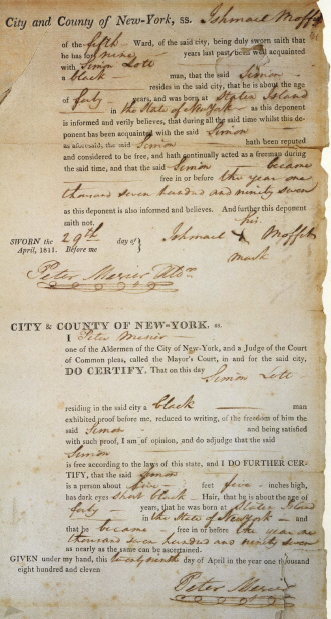 City and County of New-York, ss. Ishmael Moffit
of the fifth Ward, of the said city, being duly sworn saith that
he has for nine years last past been well acquainted
with Simon Lott
a black man, that the said Simon
resides in the said city, that he is about the age
of forty years, and was born at Staten Island
in the State of New York as this deponent
is informed and verily believes, that during all the said time whilst this de-
ponent has been acquainted with the said Simon
as aforesaid, the said Simon hath been reputed
and considered to be free, and hath continually acted as a freeman during
the said time, and that the said Simon became
free in or before the year one
thousand seven hundred and ninety seven
as this deponent is also informed and believes. And further this deponent
saith not.
SWORN the 29th day of
April, 1811. Before me
his
Ishmael X Moffit
mark
Peter Mesier
CITY & COUNTY OF NEW-YORK, ss.
I Peter Mesier
one of the Aldermen of the City of New-York, and a Judge of the Court
of Common pleas, called the Mayor's Court, in and for the said city,
DO CERTIFY, That on this day
Simon Lott
residing in the said city a black man
exhibited proof before me, reduced to writing, of the freedom of him the
said Simon and being satisfied
with such proof, I am of opinion, and do adjudge that the said
Simon
is free according to the laws of this state, and I DO FURTHER CER-
TIFY, that the said Simon
is a person about five feet five inches high,
has dark eyes short black Hair, that he is about the age of
forty years, that he was born at Staten Island
in the State of New York and
that he became free in or before the year one
thousand seven hundred and ninety seven
as nearly as the same can be ascertained.
GIVEN under my hand, this twenty ninth day of April in the year one thousand
eight hundred and eleven
Peter Mesier